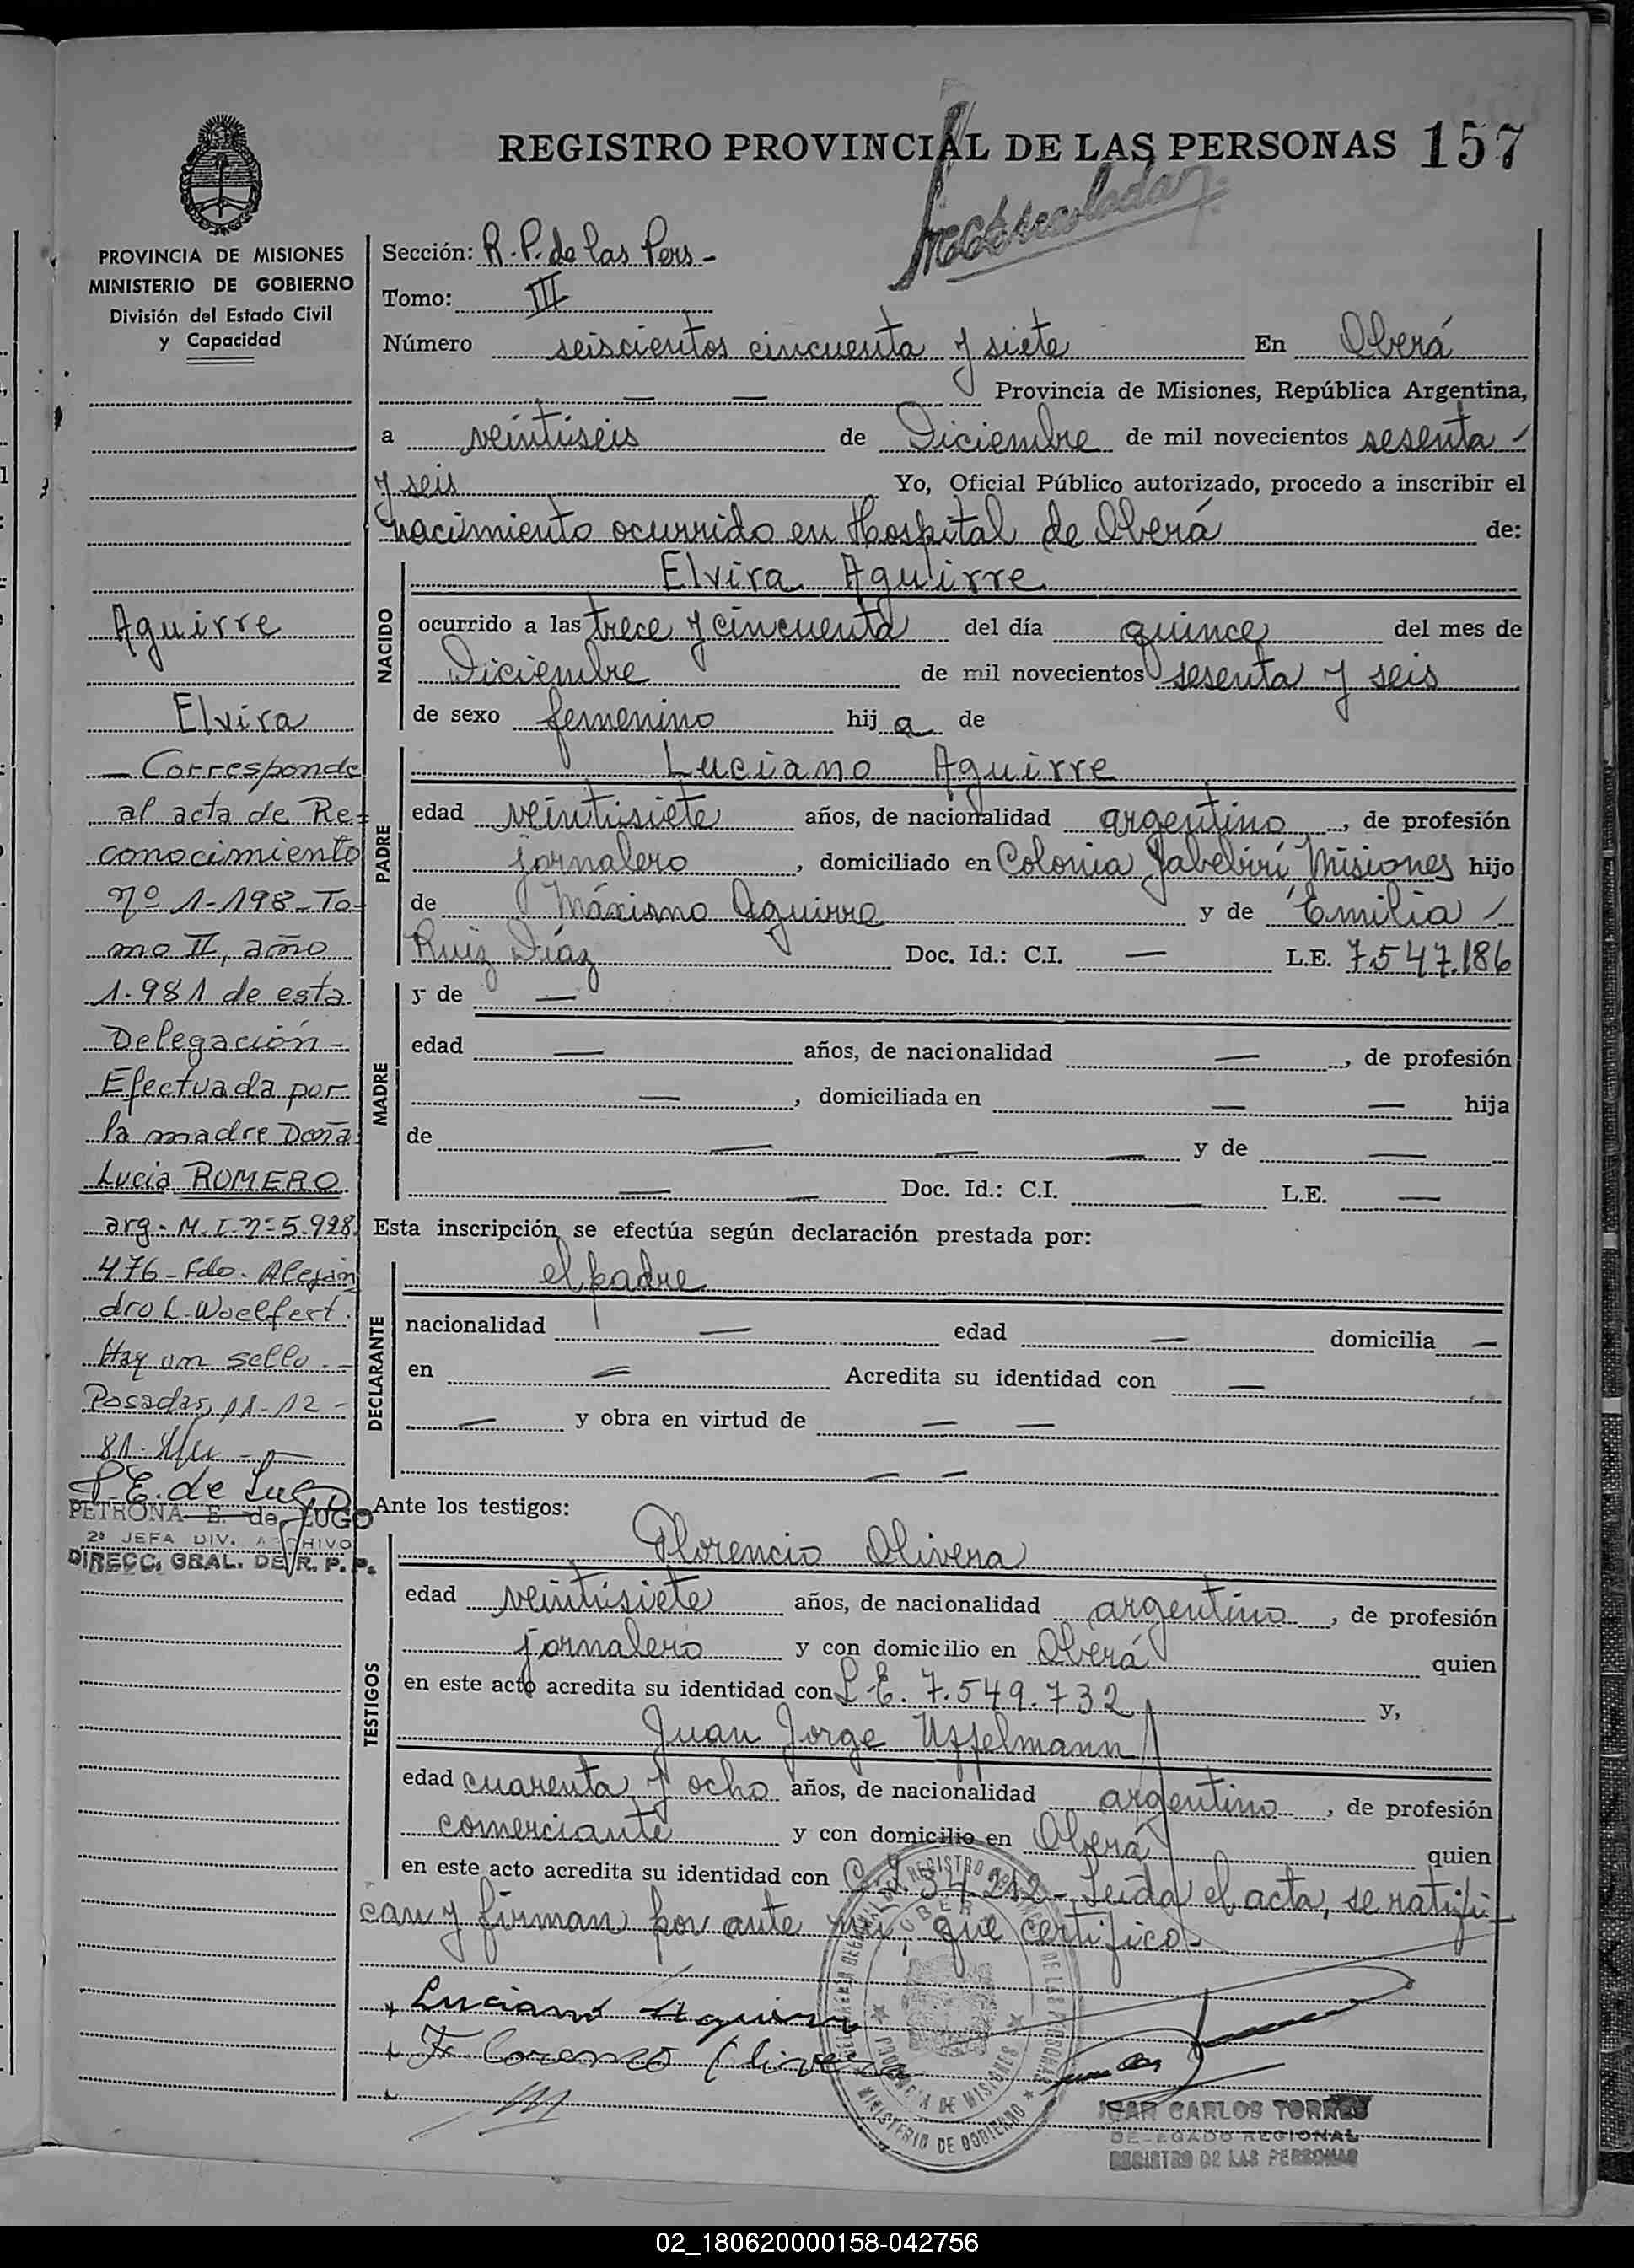 REGISTRO PROVINCIAL DE LAS PERSONAS 157
PROVINCIA DE MISIONES
MINISTERIO DE GOBIERNO
División del Estado Civil
y Capacidad
Aguirre
Elvira
— Corresponde
al acta de Re-
conocimiento
nº 1-198- To-
mo II, año
1.981 de esta
Delegación-
Efectuada por
la madre Doña
Lucia ROMERO
arg. M.I. nº 5.928
476- Fdo. Alejan
dro L. Woelfert.
Hay un sello.-
Posadas, 11-12-
81.
P. E. de Lugo
PETRONA E. de LUGO
2ª JEFA DIV. ARCHIVO
DIRECC. GRAL. DE R. P. P.
Sección: R. P. de las Pers-
Tomo: III
Número seiscientos cincuenta y siete En Oberá
— — Provincia de Misiones, República Argentina,
a veintiseis de Diciembre de mil novecientos sesenta
y seis Yo, Oficial Público autorizado, procedo a inscribir el
nacimiento ocurrido en Hospital de Oberá de:
NACIDO
Elvira Aguirre
ocurrido a las trece y cincuenta del día quince del mes de
Diciembre de mil novecientos sesenta y seis
de sexo femenino hij a de
PADRE
Luciano Aguirre
edad veintisiete años, de nacionalidad argentino, de profesión
jornalero, domiciliado en Colonia Yabebirí, Misiones hijo
de Máximo Aguirre y de Emilia
Ruiz Díaz Doc. Id.: C.I. — L.E. 7.547.186
MADRE
y de —
edad — años, de nacionalidad —, de profesión
—, domiciliada en — — hija
de — — — y de —
— — Doc. Id.: C.I. — L.E. —
Esta inscripción se efectúa según declaración prestada por:
DECLARANTE
el padre
nacionalidad — edad — domicilia —
en — Acredita su identidad con —
— y obra en virtud de — —
— —
Ante los testigos:
TESTIGOS
Florencio Olivera
edad veintisiete años, de nacionalidad argentino, de profesión
jornalero y con domicilio en Oberá quien
en este acto acredita su identidad con L.E. 7.549.732 y,
Juan Jorge Uffelmann
edad cuarenta y ocho años, de nacionalidad argentino, de profesión
comerciante y con domicilio en Oberá quien
en este acto acredita su identidad con C.I. 34.212- Leída el acta, se ratifi-
can y firman por ante mí, que certifico.-
Luciano Aguirre
Florencio Olivera
OBERA
PROVINCIA DE MISIONES
MINISTERIO DE GOBIERNO
JUAN CARLOS TORRES
DELEGADO REGIONAL
REGISTRO DE LAS PERSONAS
02_180620000158-042756